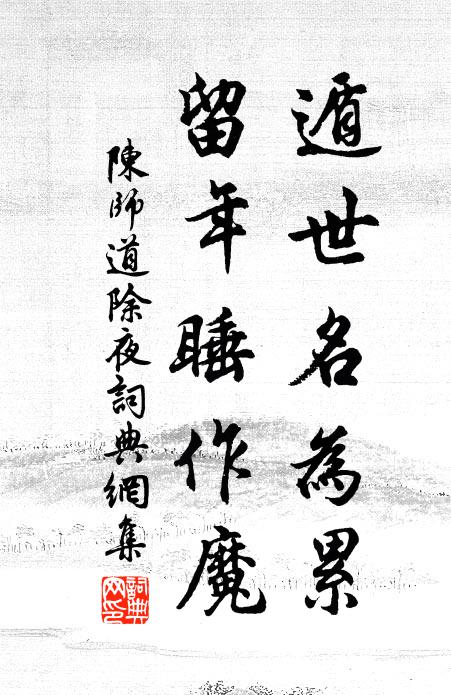 遁世名為累
留年睡作魔
陳師道除夜詞典網集
詞典網印